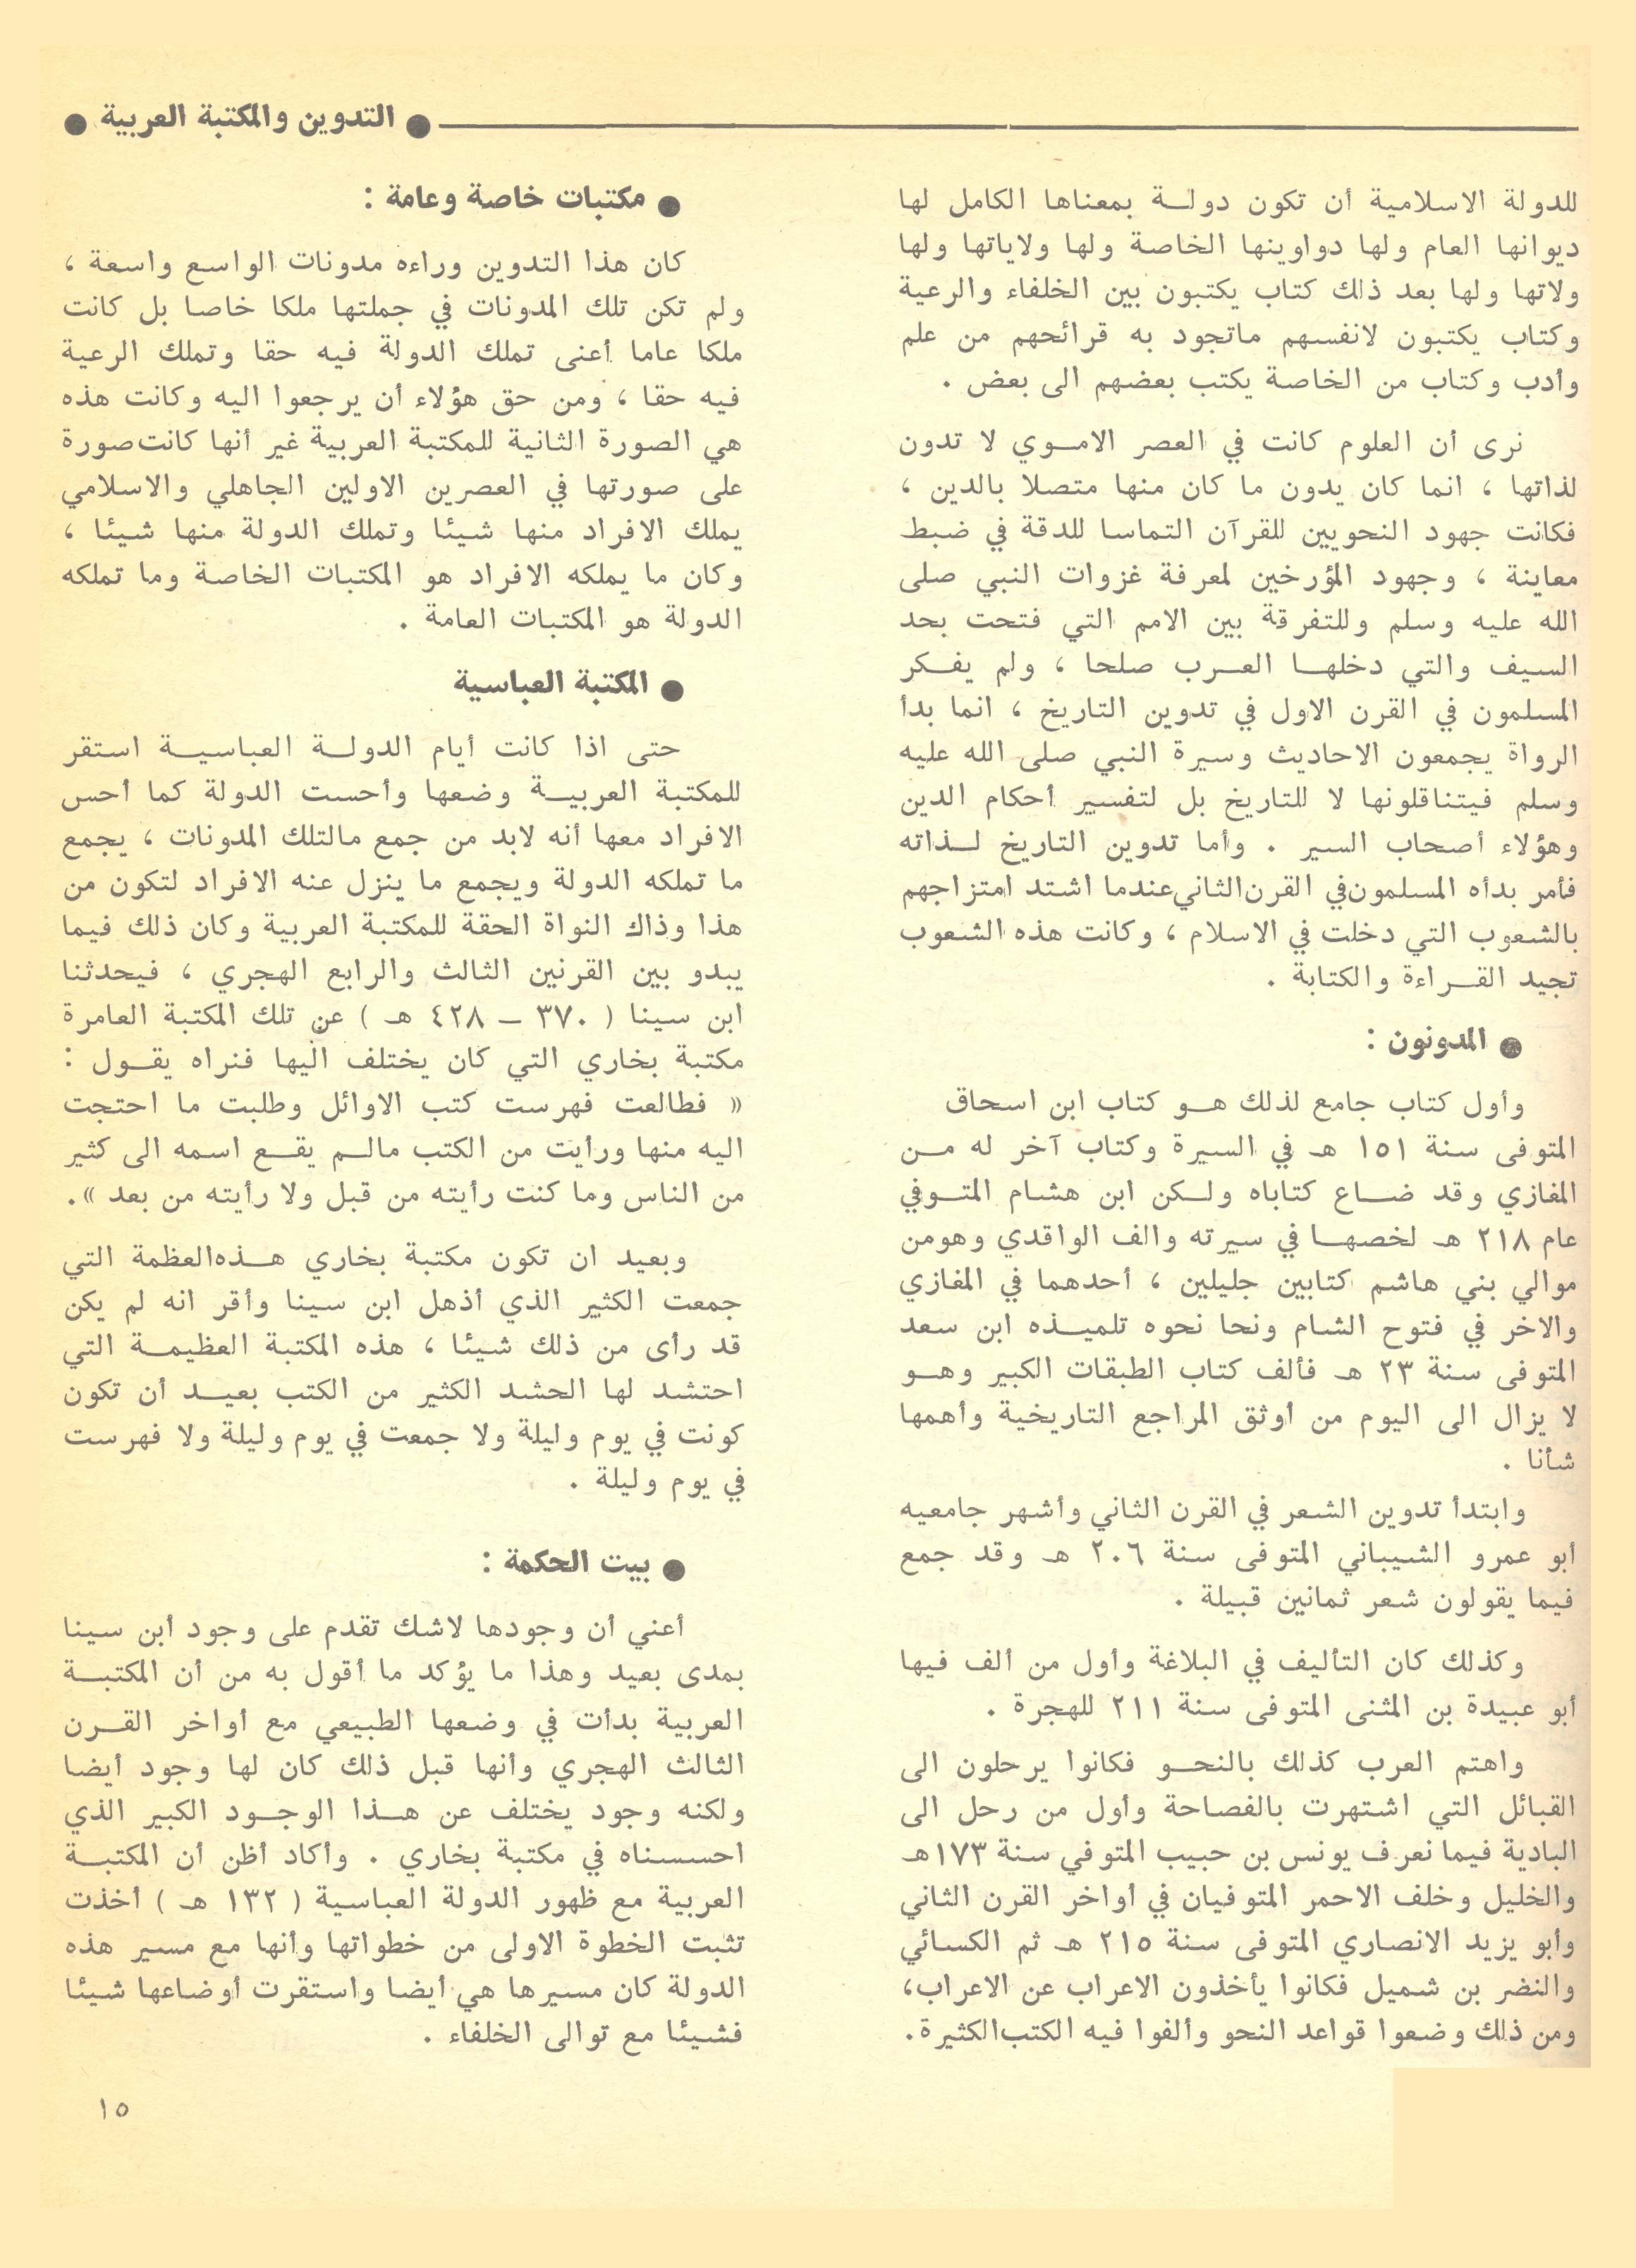 ● التدوين والمكتبة العربية ●
للدولة الاسلامية أن تكون دولة بمعناها الكامل لها
ديوانها العام ولها دواوينها الخاصة ولها ولاياتها ولها
ولاتها ولها بعد ذلك كتاب يكتبون بين الخلفاء والرعية
وكتاب يكتبون لانفسهم ماتجود به قرائحهم من علم
وأدب وكتاب من الخاصة يكتب بعضهم الى بعض .
نرى أن العلوم كانت في العصر الاموي لا تدون
لذاتها ، انما كان يدون ما كان منها متصلا بالدين ،
فكانت جهود النحويين للقرآن التماسا للدقة في ضبط
معاينة ، وجهود المؤرخين لمعرفة غزوات النبي صلى
الله عليه وسلم وللتفرقة بين الامم التي فتحت بحد
السيف والتي دخلها العرب صلحا ، ولم يفكر
المسلمون في القرن الاول في تدوين التاريخ ، انما بدأ
الرواة يجمعون الاحاديث وسيرة النبي صلى الله عليه
وسلم فيتناقلونها لا للتاريخ بل لتفسير أحكام الدين
وهؤلاء أصحاب السير . وأما تدوين التاريخ لذاته
فأمر بدأه المسلمون في القرن الثاني عندما اشتد امتزاجهم
بالشعوب التي دخلت في الاسلام ، وكانت هذه الشعوب
تجيد القراءة والكتابة .
● المدونون :
وأول كتاب جامع لذلك هو كتاب ابن اسحاق
المتوفى سنة ١٥١ هـ في السيرة وكتاب آخر له من
المغازي وقد ضاع كتاباه ولكن ابن هشام المتوفي
عام ٢١٨ هـ لخصها في سيرته والف الواقدي وهومن
موالي بني هاشم كتابين جليلين ، أحدهما في المغازي
والاخر في فتوح الشام ونحا نحوه تلميذه ابن سعد
المتوفى سنة ٢٣ هـ فألف كتاب الطبقات الكبير وهو
لا يزال الى اليوم من أوثق المراجع التاريخية وأهمها
شأنا .
وابتدأ تدوين الشعر في القرن الثاني وأشهر جامعيه
أبو عمرو الشيباني المتوفى سنة ٢٠٦ هـ وقد جمع
فيما يقولون شعر ثمانين قبيلة .
وكذلك كان التأليف في البلاغة وأول من ألف فيها
أبو عبيدة بن المثنى المتوفى سنة ٢١١ للهجرة .
واهتم العرب كذلك بالنحو فكانوا يرحلون الى
القبائل التي اشتهرت بالفصاحة وأول من رحل الى
البادية فيما نعرف يونس بن حبيب المتوفي سنة ١٧٣هـ
والخليل وخلف الاحمر المتوفيان في أواخر القرن الثاني
وأبو يزيد الانصاري المتوفى سنة ٢١٥ هـ ثم الكسائي
والنضر بن شميل فكانوا يأخذون الاعراب عن الاعراب،
ومن ذلك وضعوا قواعد النحو وألفوا فيه الكتب الكثيرة.
● مكتبات خاصة وعامة :
كان هذا التدوين وراءه مدونات الواسع واسعة ،
ولم تكن تلك المدونات في جملتها ملكا خاصا بل كانت
ملكا عاما أعنى تملك الدولة فيه حقا وتملك الرعية
فيه حقا ، ومن حق هؤلاء أن يرجعوا اليه وكانت هذه
هي الصورة الثانية للمكتبة العربية غير أنها كانت صورة
على صورتها في العصرين الاولين الجاهلي والاسلامي
يملك الافراد منها شيئا وتملك الدولة منها شيئا ،
وكان ما يملكه الافراد هو المكتبات الخاصة وما تملكه
الدولة هو المكتبات العامة .
● المكتبة العباسية
حتى اذا كانت أيام الدولة العباسية استقر
للمكتبة العربية وضعها وأحست الدولة كما أحس
الافراد معها أنه لابد من جمع مالتلك المدونات ، يجمع
ما تملكه الدولة ويجمع ما ينزل عنه الافراد لتكون من
هذا وذاك النواة الحقة للمكتبة العربية وكان ذلك فيما
يبدو بين القرنين الثالث والرابع الهجري ، فيحدثنا
ابن سينا ( ٣٧٠ – ٤٢٨ هـ ) عن تلك المكتبة العامرة
مكتبة بخاري التي كان يختلف اليها فنراه يقول :
« فطالعت فهرست كتب الاوائل وطلبت ما احتجت
اليه منها ورأيت من الكتب مالم يقع اسمه الى كثير
من الناس وما كنت رأيته من قبل ولا رأيته من بعد ».
وبعيد ان تكون مكتبة بخاري هذه العظمة التي
جمعت الكثير الذي أذهل ابن سينا وأقر انه لم يكن
قد رأى من ذلك شيئا ، هذه المكتبة العظيمة التي
احتشد لها الحشد الكثير من الكتب بعيد أن تكون
كونت في يوم وليلة ولا جمعت في يوم وليلة ولا فهرست
في يوم وليلة .
● بيت الحكمة :
أعني أن وجودها لاشك تقدم على وجود أبن سينا
بمدى بعيد وهذا ما يؤكد ما أقول به من أن المكتبة
العربية بدأت في وضعها الطبيعي مع أواخر القرن
الثالث الهجري وأنها قبل ذلك كان لها وجود أيضا
ولكنه وجود يختلف عن هذا الوجود الكبير الذي
احسسناه في مكتبة بخاري . وأكاد أظن أن المكتبة
العربية مع ظهور الدولة العباسية ( ١٣٢ هـ ) أخذت
تثبت الخطوة الاولى من خطواتها وأنها مع مسير هذه
الدولة كان مسيرها هي أيضا واستقرت أوضاعها شيئا
فشيئا مع توالى الخلفاء .
١٥